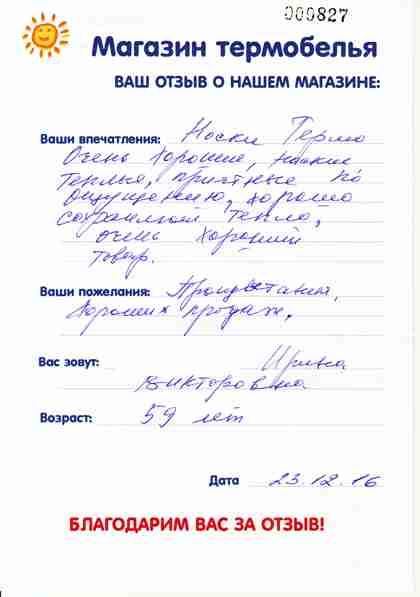 000827
Магазин термобелья
ВАШ ОТЗЫВ О НАШЕМ МАГАЗИНЕ:
Ваши впечатления: Носки Термо
Очень хорошие, мягкие
теплые, приятные по
ощущению, хорошо
сохраняют тепло,
очень хороший
товар.
Ваши пожелания: Процветания,
хороших продаж.
Вас зовут: Ирина
Викторовна
Возраст: 59 лет
Дата 23.12.16
БЛАГОДАРИМ ВАС ЗА ОТЗЫВ!